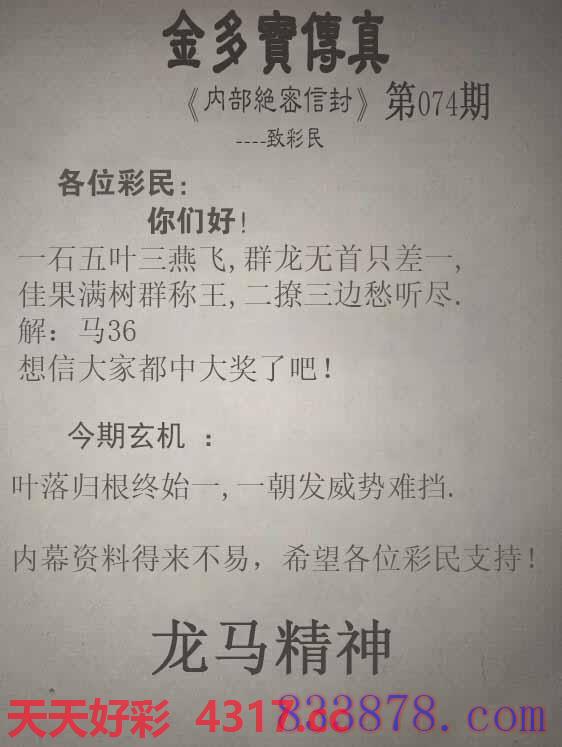 金多寶傳真
《内部絶密信封》第074期
----致彩民
各位彩民:
你们好!
一石五叶三燕飞,群龙无首只差一,
佳果满树群称王,二撩三边愁听尽.
解：马36
想信大家都中大奖了吧!
今期玄机 ：
叶落归根终始一,一朝发威势难挡.
内幕资料得来不易，希望各位彩民支持!
龙马精神
天天好彩 4317.cc
833878.com